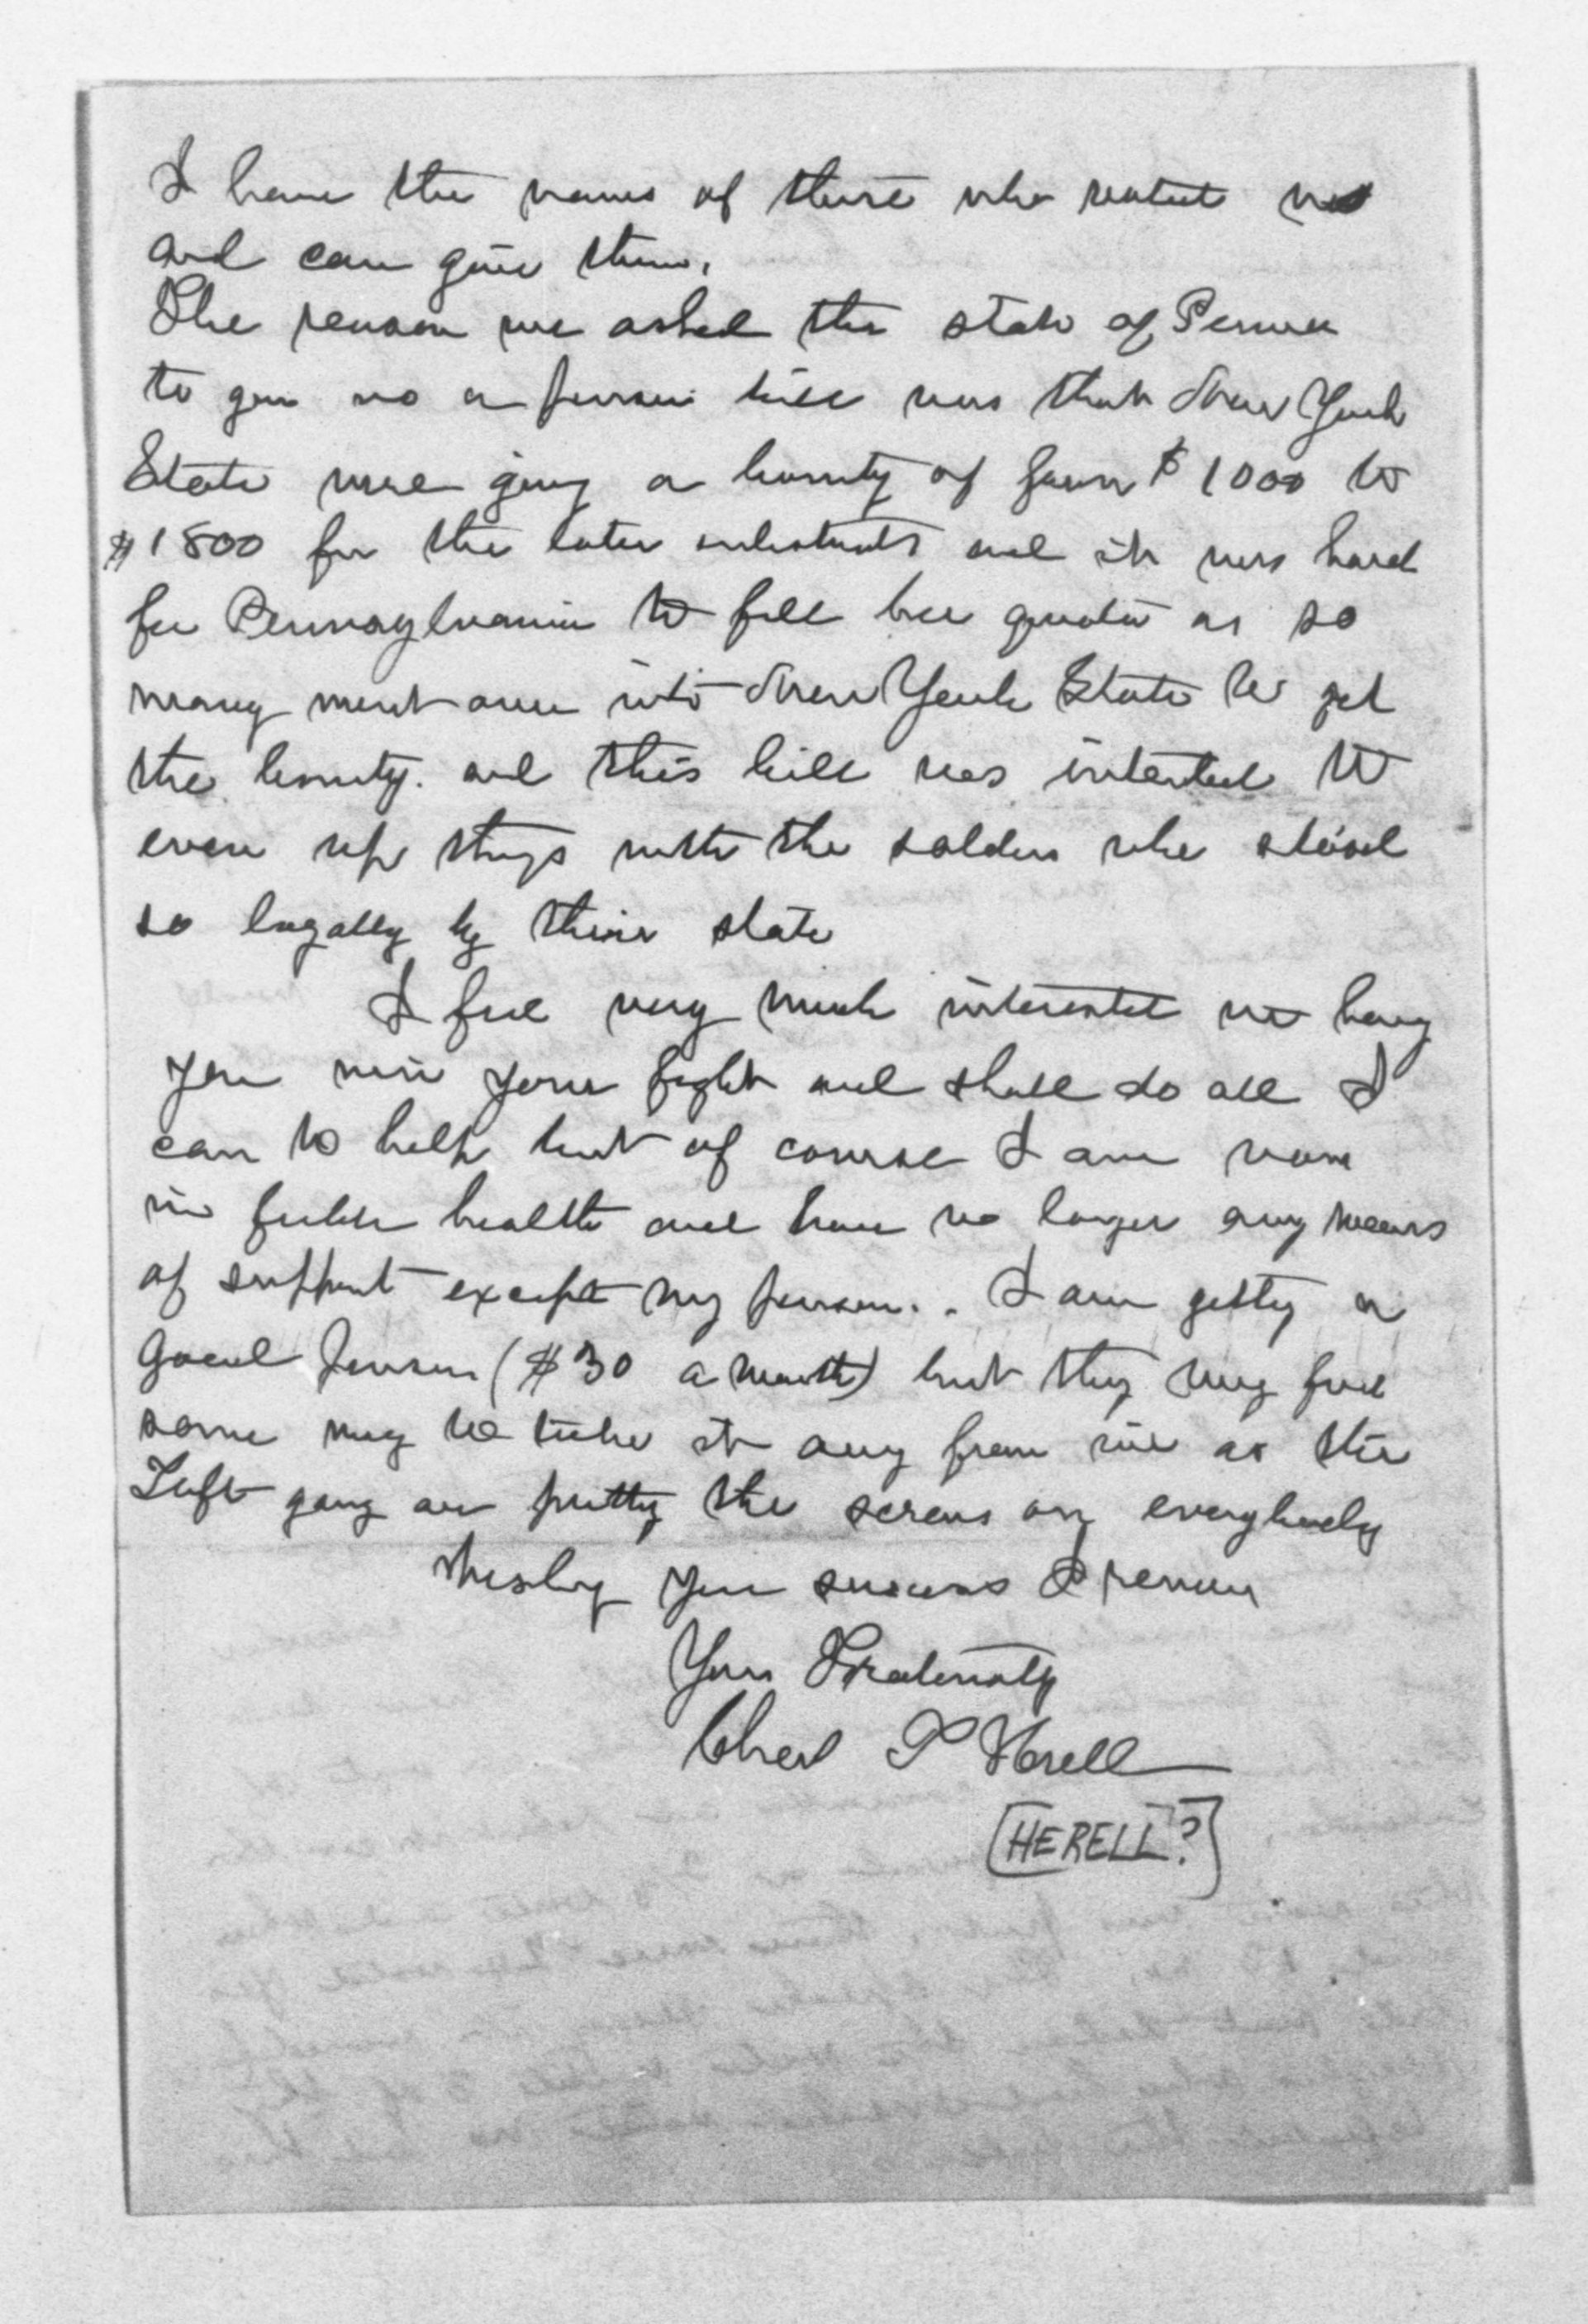 I have the names of those who
and can give them.
The reason we asked the state of Penna
to give us a pension bill was that New York
State were giving a bounty of from $1000 to
$1800 for the later enlistments and it was hard
for Pennsylvania to fill her quota as so
many went over into New York State to get
the bounty. and this bill was intended to
even up things with the soldiers who stood
so loyally by their state
I feel very much interested in having
you win your fight and shall do all I
can to help but of course I am now
in feeble health and have no longer any means
of support except my pension.. I am getting a
good pension ($30 a month) but they may find
some way to take it away from me as the
Taft gang are putting the screws on everybody
Wishing you success I remain
Yours Fraternally
Chas P Herell
[HERELL?]